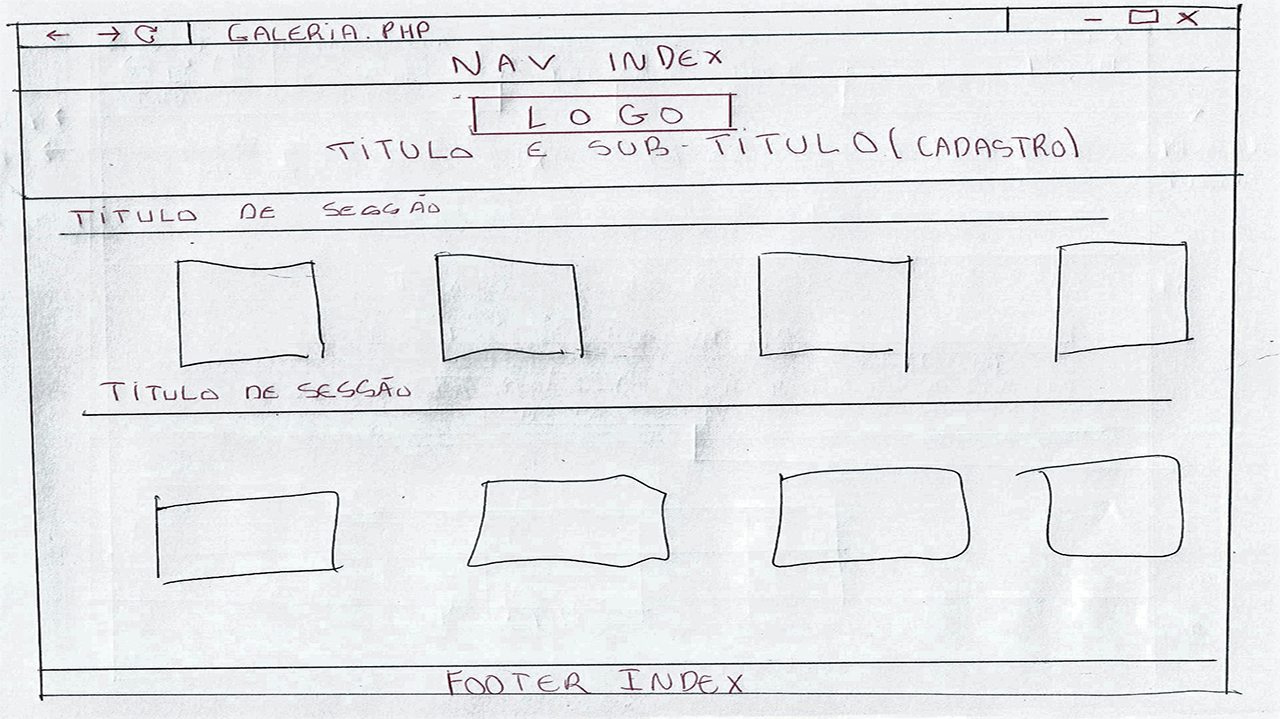 GALERIA.PHP
NAV INDEX
LOGO
TITULO E SUB-TITULO (CADASTRO)
TITULO DE SESSÃO
TITULO DE SESSÃO
FOOTER INDEX